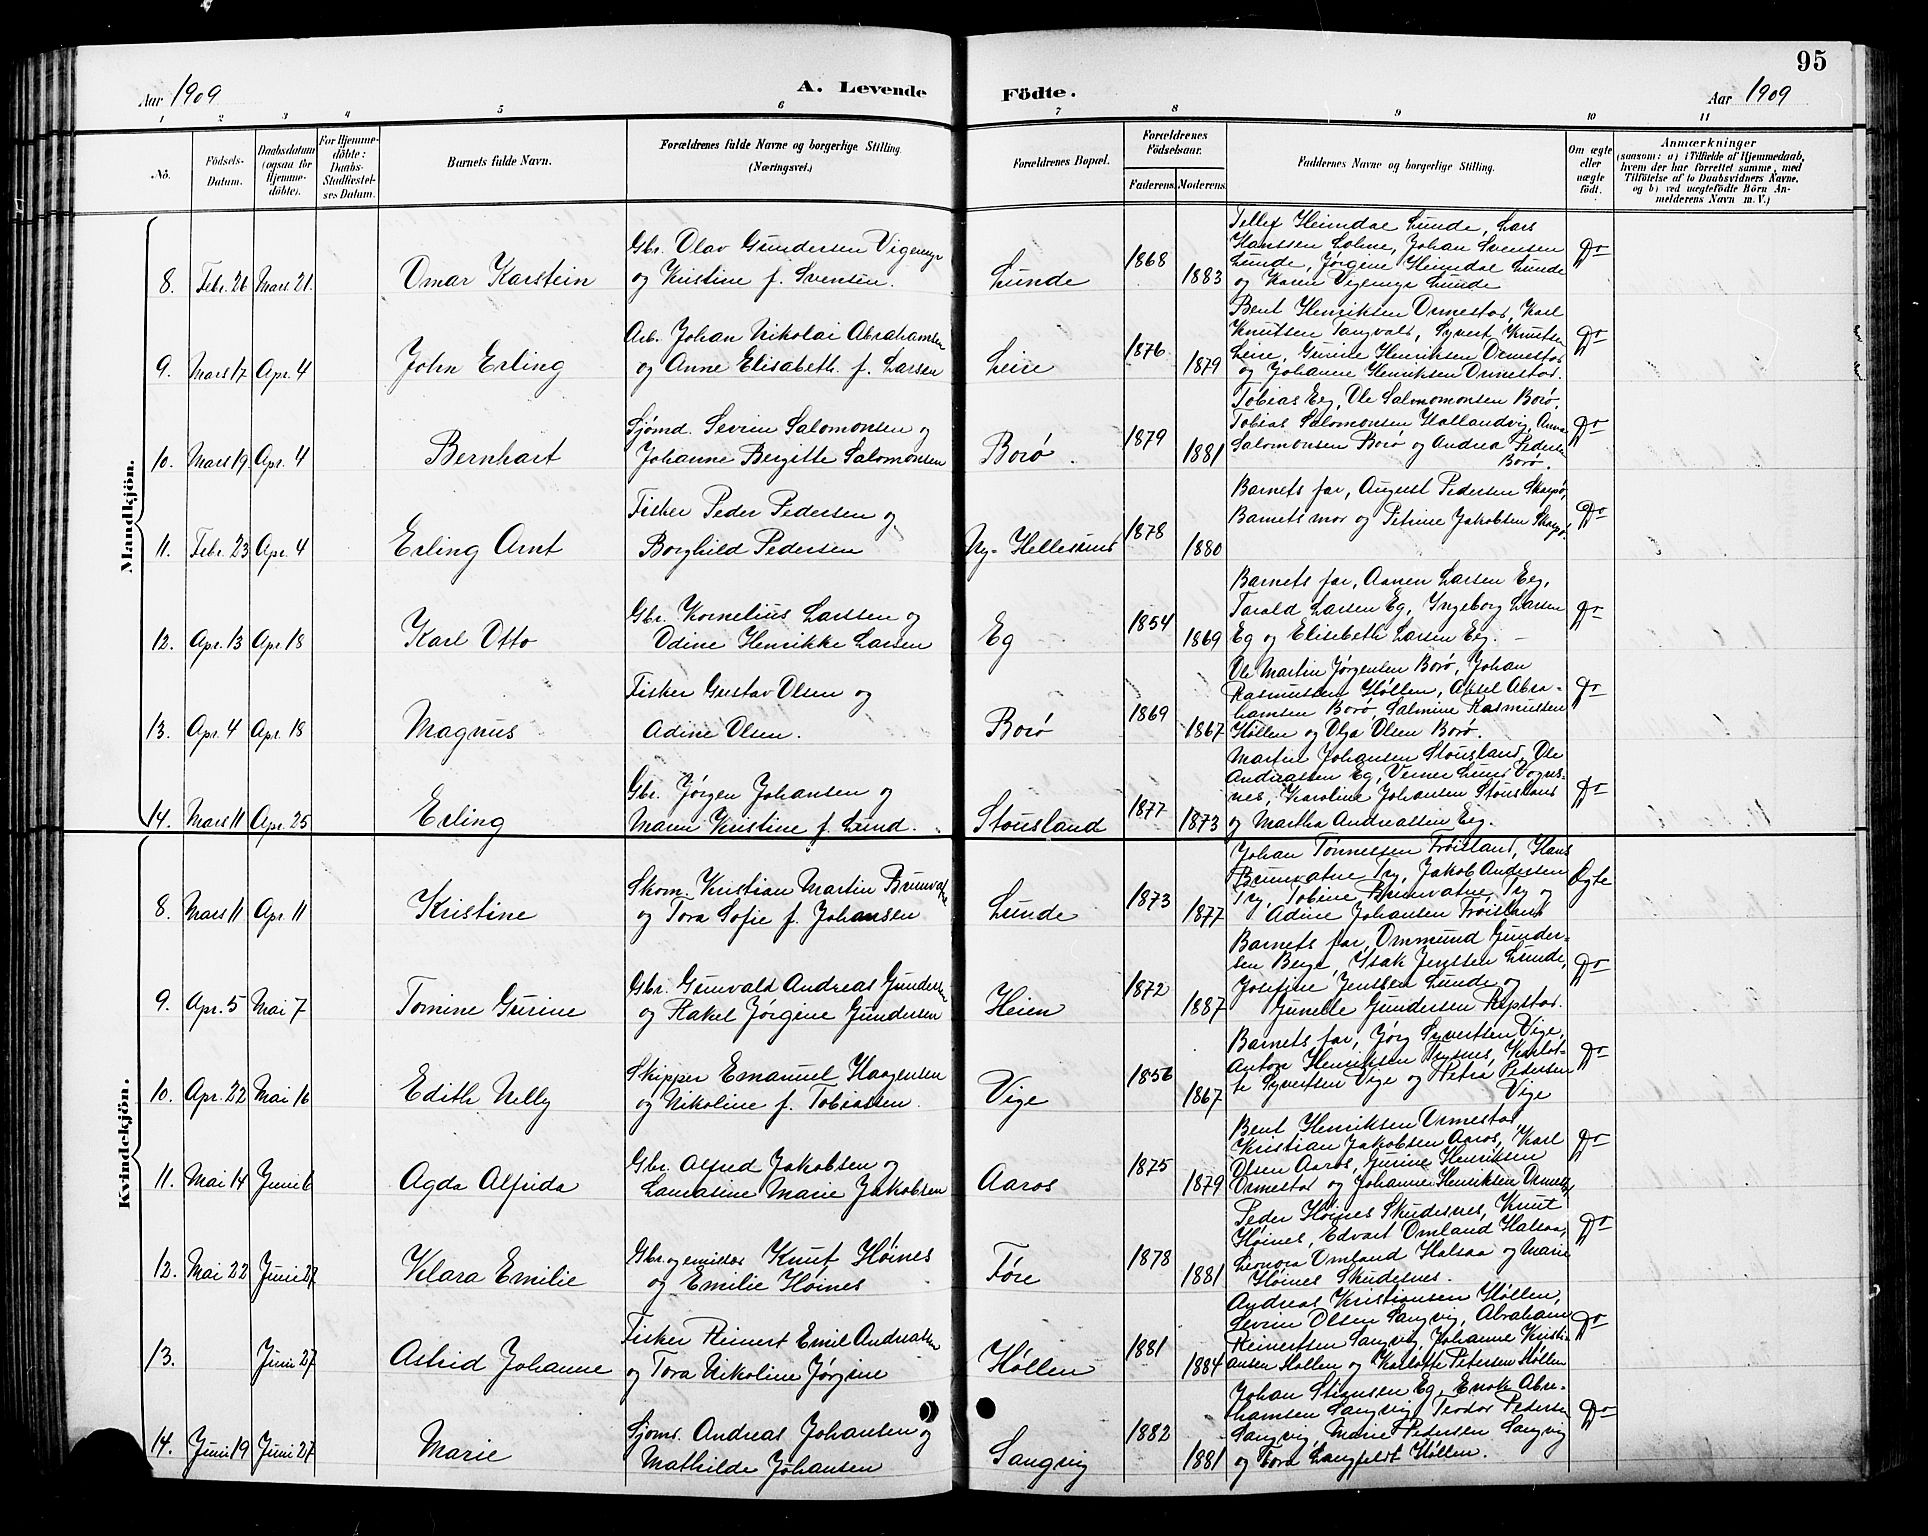 95
Aar 1909
A. Levende
Födte.
Aar 1909
1 2 3 4 5 6 7 8 9 10 11
No.
Födsels-Datum.
Daabsdatum (ogsaa for Hjemmedöbte).
For Hjemmedöbte: Daabs-Stadfæstelses Datum.
Barnets fulde Navn.
Forældrenes fulde Navne og borgerlige Stilling. (Næringsvei.)
Forældrenes Bopæl.
Forældrenes Födselsaar.
Faderens. Moderens.
Faddernes Navne og borgerlige Stilling.
Om ægte eller uægte födt.
Anmærkninger
(saasom: a) i Tilfælde af Hjemmedaab, hvem der har forrettet samme, med Tilföielse af to Daabsvidners Navne, og b) ved uægtefödte Börn Anmelderens Navn m. V.)
Mandkjön.
8. Febr. 26 Mars 21. Omar Karstein
Gbr. Olav Gundersen Vigemyr
og Kristine f. Svensen.
Lunde 1868 1883
Tellef Heimdal Lunde, Lars
Hanssen Lohne, Johan Svensen
Lunde, Jørgine Heimdal Lunde
og Karen Vigemyr Lunde
Do
9. Mars 17 Apr. 4 John Erling
Arb. Johan Nikolai Abrahamsen
og Anne Elisabeth f. Larsen
Leire 1876 1879
Bent Henriksen Ormestad, Karl
Knutsen Tangvald, Syvert Knutsen
Leire, Gurine Henriksen Ormestad
og Johanne Henriksen Ormestad.
Do
10. Mars 19 Apr. 4 Bernhart
Sjömd. Severin Salomonsen og
Johanne Bergitte Salomonsen
Borø. 1879 1881
Tobias Eeg, Ole Salomonsen Borø,
Tobias Salomonsen Hallandvig, Anna
Salomonsen Borø og Andrea Pedersen
Borø.
Do
11. Febr. 23 Apr. 4 Erling Arnt
Fisker Peder Pedersen og
Borghild Pedersen
Ny-Hellesund 1878 1880
Barnets far, August Pedersen Skarpø,
Barnets mor og Petrine Jakobsen Skarpø.
Do
12. Apr. 13 Apr. 18 Karl Otto
Gbr. Kornelius Larssen og
Odine Henrikke Larsen
Eg 1854 1869
Barnets far, Aanen Larsen Eeg,
Tarald Larsen Eg, Ingeborg Larsen
Eg og Elisebeth Larsen Eeg.
Do
13. Apr. 4 Apr. 18 Magnus
Fisker Gustav Olsen og
Adine Olsen.
Borø 1869 1867
Ole Martin Jørgensen Borø, Johan
Rasmussen Høllen, Aksel Abra-
hamsen Borø, Salmine Rasmussen
Høllen og Olga Olsen Borø.
Do
14. Mars 11 Apr. 25 Erling
Gbr. Jørgen Johansen og
Maren Kristine f. Lund.
Stousland 1877 1873
Martin Johansen Stousland, Ole
Andreassen Eg, Verner Lund Vogns-
nes, Karoline Johansen Stousland
og Martha Andreassen Eeg.
Do
Kvindekjön.
8. Mars 11 Apr. 11 Kristine
Skom. Kristian Martin Brunvatne
og Tora Sofie f. Johansen
Lunde 1873 1877
Johan Tønnessen Frøisland, Hans
Brunvatne Try, Jakob Andersen
Try, Tobine Brunvatne Try og
Adine Johansen Frøisland
Egte
9. Apr. 5 Mai 7 Tomine Gurine
Gbr. Gunvald Andreas Gundersen
og Rakel Jørgine Gundersen
Heien 1872 1887
Barnets far, Ommund Gunder-
sen Berge, Isak Jenssen Lunde,
Josefine Jenssen Lunde og
Gunelle Gundersen Repstad.
Do
10. Apr. 22 Mai 16 Edith Nelly
Skipper Emanuel Haagensen
og Nikoline f. Tobiassen.
Vige 1856 1867
Barnets far, Jørg Syvertsen Vige,
Anton Henriksen Trysnes, Karlot-
te Syvertsen Vige og Petra Petersen
Vige
Do
11. Mai 14 Juni 6 Agda Alfrida
Gbr. Alfred Jakobsen og
Laurasine Marie Jakobsen
Aaros 1875 1879
Bent Henriksen Ormestad,
Kristian Jakobsen Aaros, Karl
Olsen Aaros, Gurine Henriksen
Ormestad og Johanne Henriksen Ormestad
Do
12. Mai 22 Juni 27 Klara Emilie
Gbr. og emissær Knut Høines
og Emilie Høines
Føre 1878 1881
Peder Høines Skudesnes, Knut
Høines, Edvart Omland Halsaa,
Leonora Omland Halsaa og Marie
Høines Skudesnes.
Do
13. Juni 27 Astrid Johanne
Fisker Reinert Emil Andreassen
og Tora Nikoline Jørgine
Høllen 1881 1884
Andreas Kristiansen Høllen,
Severin Olsen Sangvig, Abraham
Reinertsen Sangvig, Johanne Kristi-
ansen Høllen og Karlotte Petersen Høllen
Do
14. Juni 19 Juni 27 Marie
Sjømd. Andreas Johansen og
Mathilde Johansen
Sangvig 1882 1881
Johan Stiansen Eg, Enok Abra-
hamsen Sangvig, Teodor Pedersen
Sangvig, Marie Pedersen Sangvig
og Tora Langfeldt Høllen.
Do